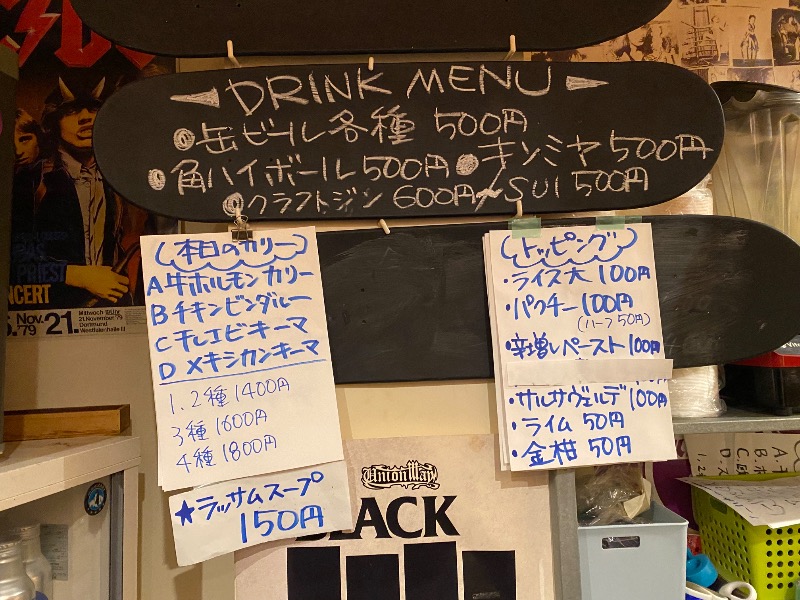 DRINK MENU
缶ビール各種 500円
角ハイボール500円 キンミヤ500円
クラフトジン 600円 SUI 500円
本日のカリー
A 牛ホルモンカリー
B チキンビンダルー
C 干しエビキーマ
D メキシカンキーマ
1,2種 1400円
3種 1600円
4種 1800円
★ラッサムスープ
150円
トッピング
・ライス大 100円
・パクチー 100円
(ハーフ50円)
・辛増しペースト 100円
・サルサヴェルデ 100円
・ライム 50円
・金柑 50円
PRIEST
Nov.
'79
21.
Mittwoch
21.November '79
Dortmund
Westfalenhalle III
Union Way
BLACK